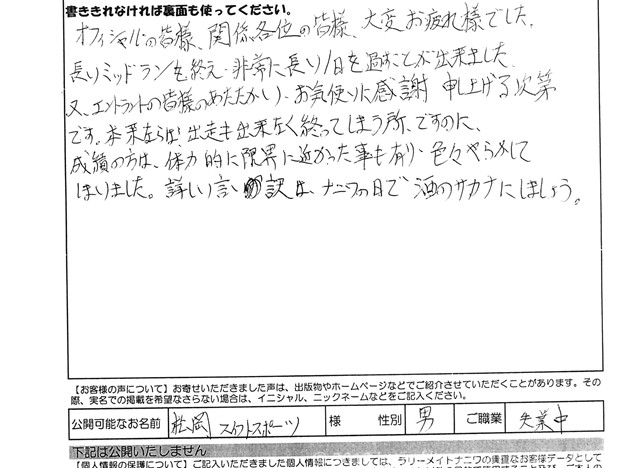 書ききれなければ裏面も使ってください。
オフィシャルの皆様、関係各位の皆様、大変お疲れ様でした。
長いミッドランを終え、非常に長い1日を過すことが出来ました。
又、エントラントの皆様のあたたかい、お気使いに感謝 申し上げる次第
です。本来ならば、出走も出来なく終ってしまう所、ですのに、
成績の方は、体力的に限界に近かった事も有り、色々やらかして
まいりました。詳しい言い訳は、ナニワの日で酒のサカナにしましょう。
【お客様の声について】お寄せいただきました声は、出版物やホームページなどでご紹介させていただくことがあります。その
際、実名での掲載を希望なさらない場合は、イニシャル、ニックネームなどをご記入ください。
公開可能なお名前 松岡 スイフトスポーツ 様 性別 男 ご職業 失業中
下記は公開いたしません
【個人情報の保護について】ご記入いただきました個人情報につきましては、ラリーメイトナニワの貴重なお客様データとして